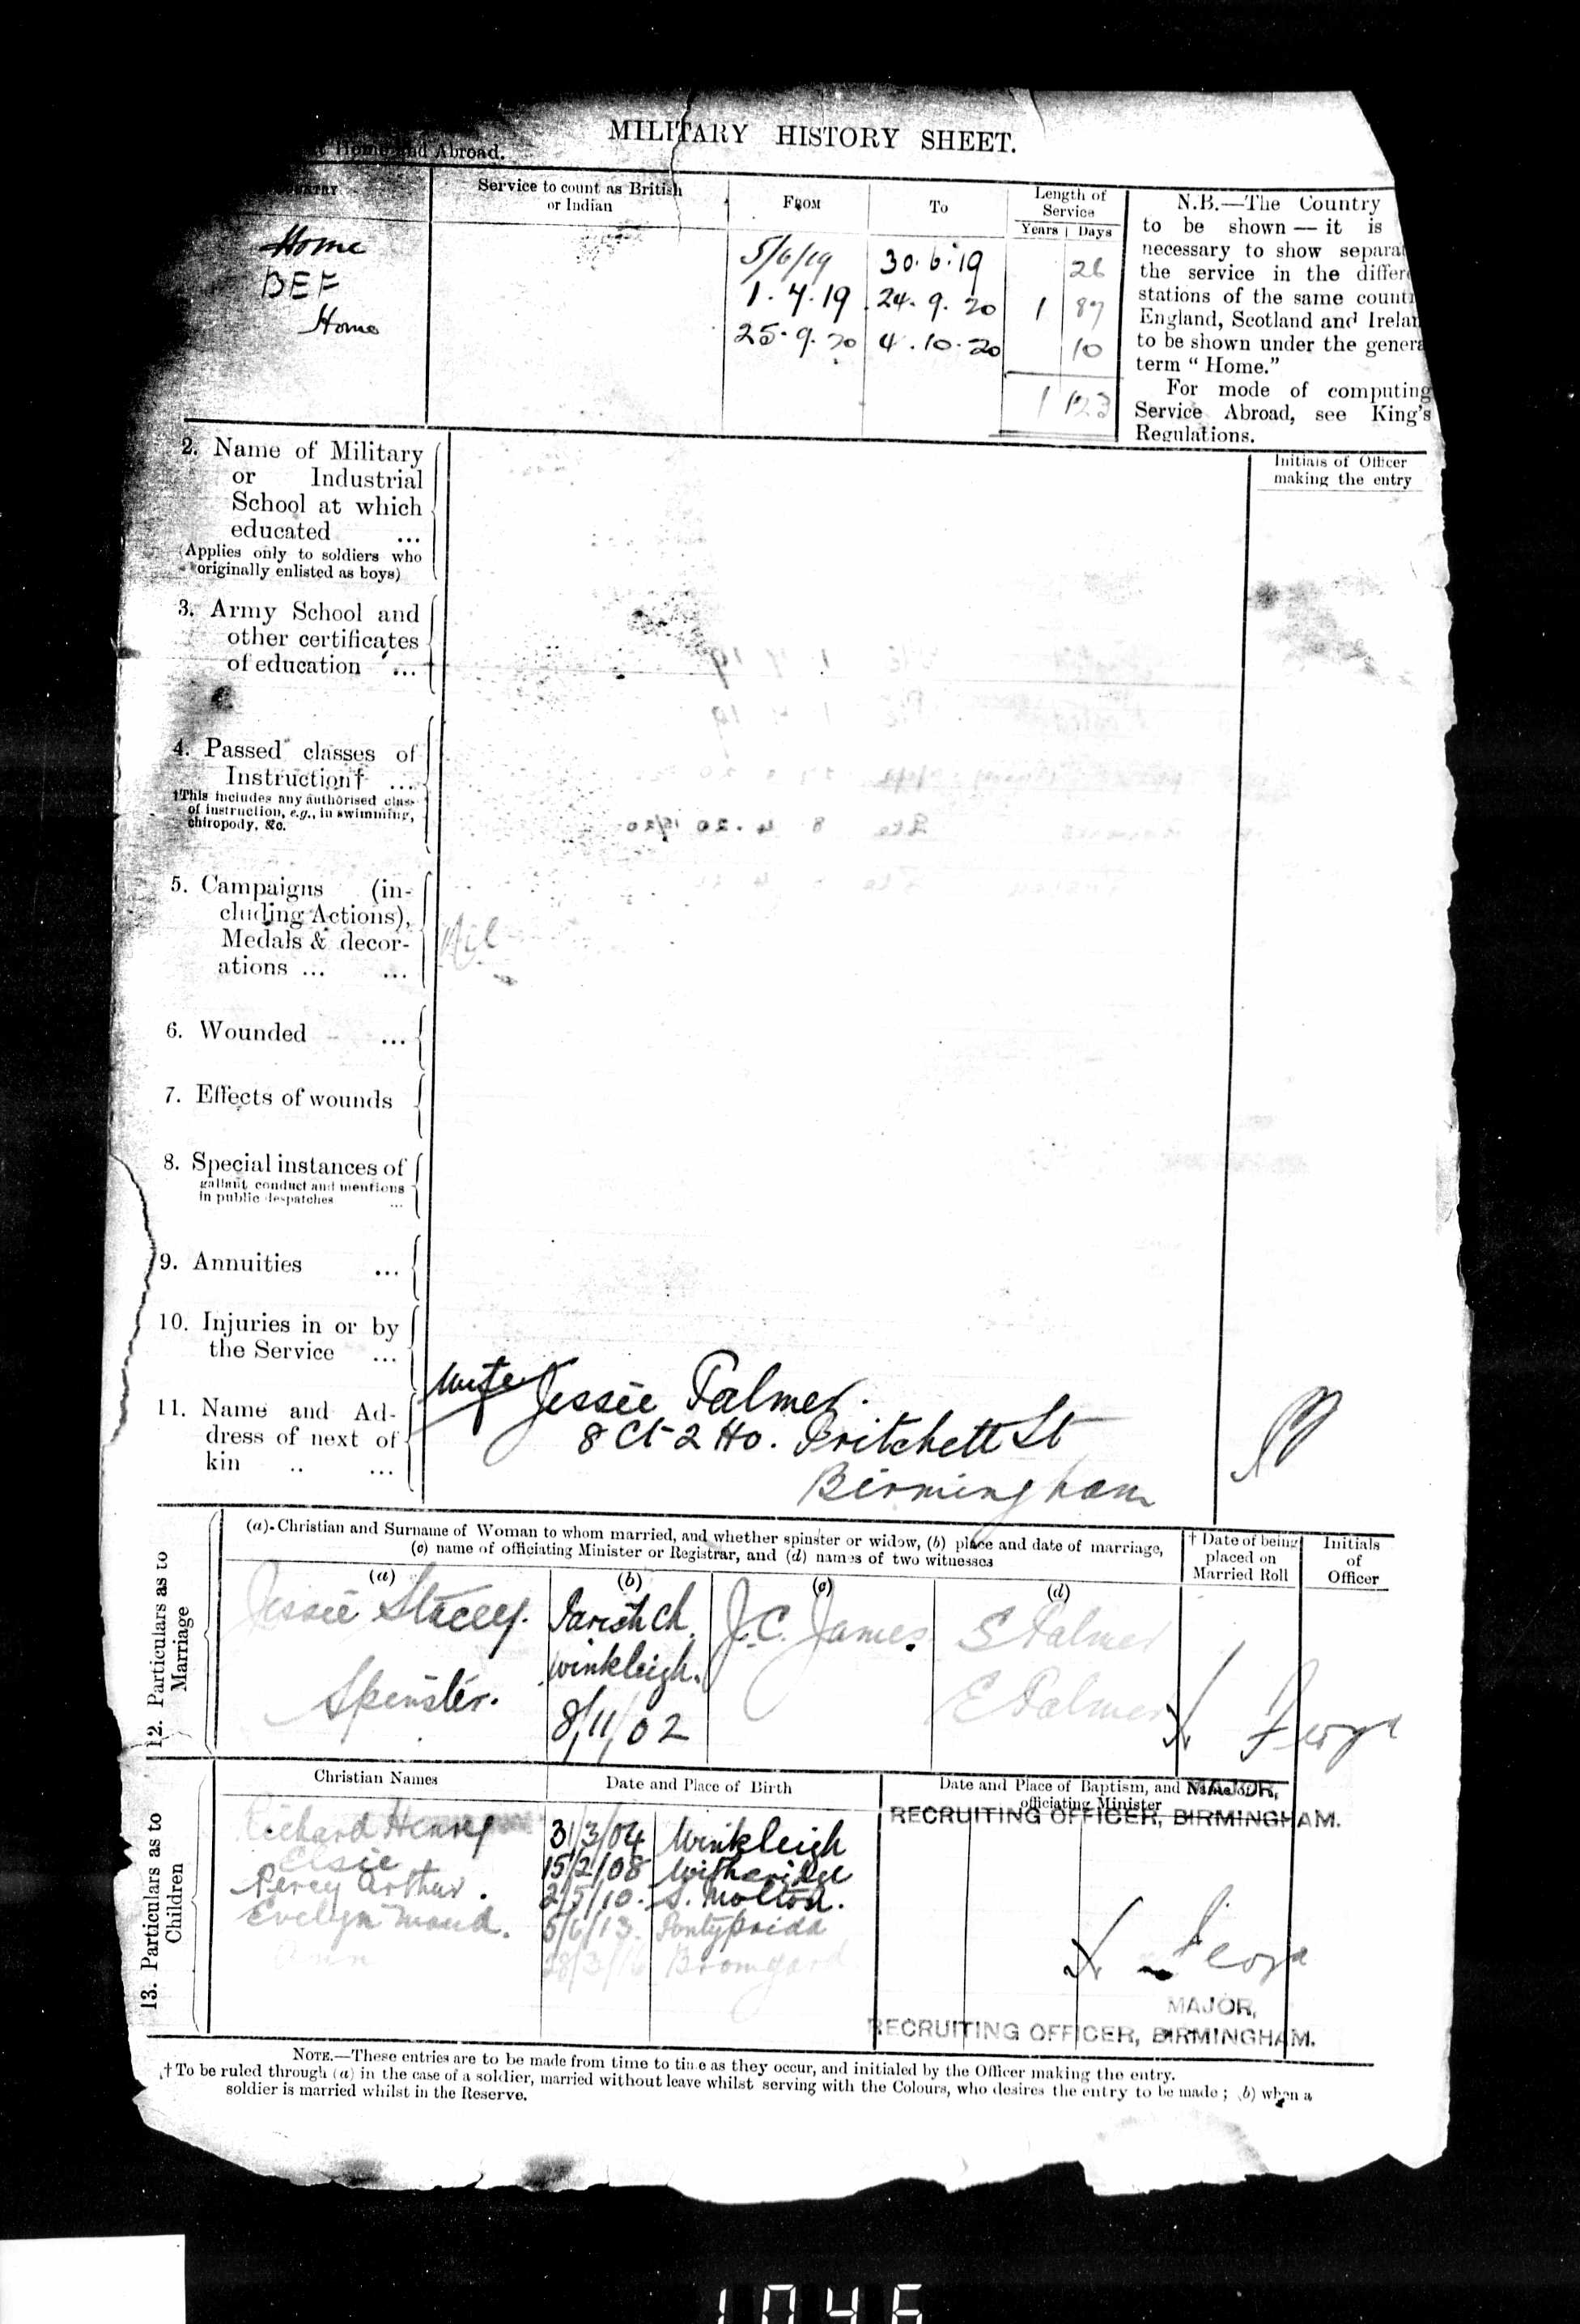 MILITARY HISTORY SHEET.
Home and Abroad.
Service to count as British
or Indian
FROM
To
Length of
Service
Years | Days
Home 5/6/19 30.6.19 26
BEF 1.7.19 24.9.20 1 87
Home 25.9.20 4.10.20 10
1 123
N.B.—The Country
to be shown — it is
necessary to show separat
the service in the differe
stations of the same count
England, Scotland and Irelan
to be shown under the genera
term “ Home.”
For mode of computing
Service Abroad, see King's
Regulations.
Initials of Officer
making the entry
2. Name of Military
or Industrial
School at which
educated ...
(Applies only to soldiers who
originally enlisted as boys)
3. Army School and
other certificates
of education ...
4. Passed classes of
Instruction† ...
†This includes any authorised class
of instruction, e.g., in swimming,
chiropody, &c.
5. Campaigns (in-
cluding Actions),
Medals & decor-
ations ... ...
Nil
6. Wounded ...
7. Effects of wounds
8. Special instances of
gallant conduct and mentions
in public despatches ...
9. Annuities ...
10. Injuries in or by
the Service ...
11. Name and Ad-
dress of next of
kin .. ...
Wife Jessie Palmer.
8 Ct 2 Ho. Pritchett St
Birmingham
12. Particulars as to
Marriage
(a) Christian and Surname of Woman to whom married, and whether spinster or widow, (b) place and date of marriage,
(c) name of officiating Minister or Registrar, and (d) names of two witnesses
† Date of being
placed on
Married Roll
Initials
of
Officer
(a) (b) (c) (d)
Jessie Stacey. Parish Ch. J.C. James. S Palmer
Spinster. Winkleigh. E Palmer
8/11/02
13. Particulars as to
Children
Christian Names
Date and Place of Birth
Date and Place of Baptism, and Name of
officiating Minister
MAJOR,
RECRUITING OFFICER, BIRMINGHAM.
Richard Henry 31/3/04 Winkleigh
Elsie 15/2/08 Witheridge
Percy Arthur. 2/5/10. S. Molton.
Evelyn Maud. 5/6/13. Pontypridd
Ann 28/3/16 Bromyard
MAJOR,
RECRUITING OFFICER, BIRMINGHAM.
NOTE.—These entries are to be made from time to time as they occur, and initialed by the Officer making the entry.
† To be ruled through (a) in the case of a soldier, married without leave whilst serving with the Colours, who desires the entry to be made ; (b) when a
soldier is married whilst in the Reserve.
1046